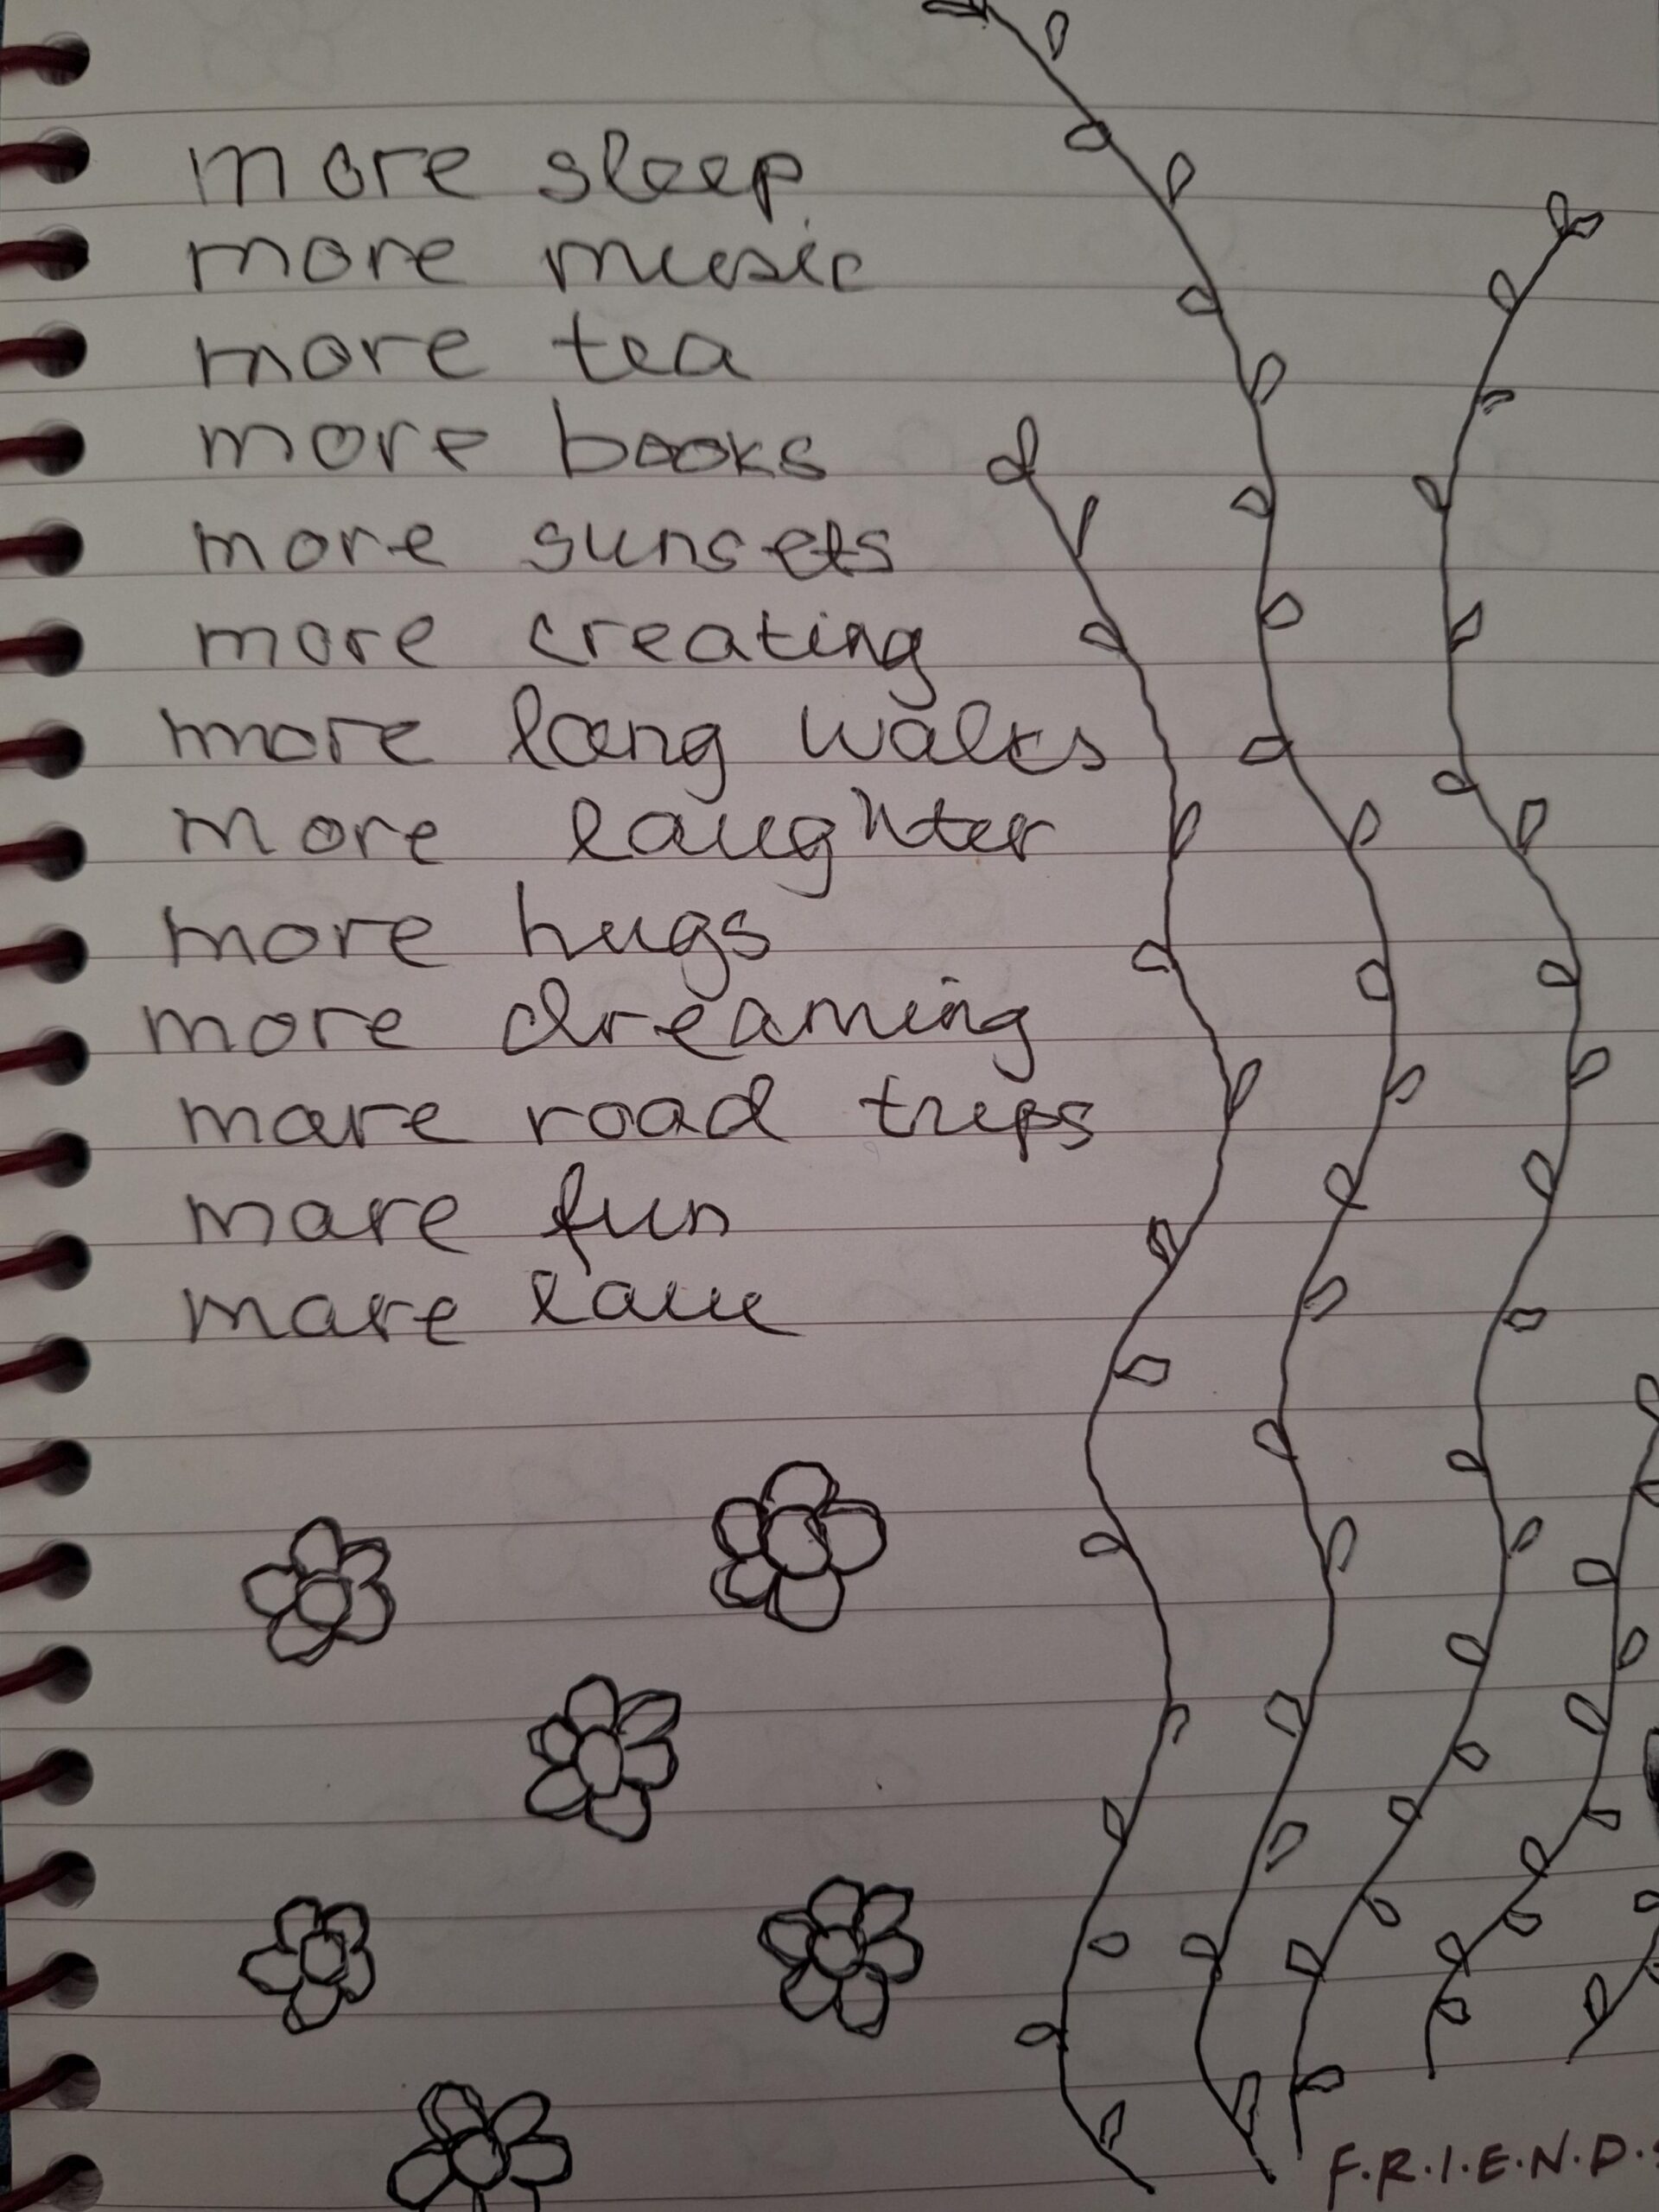 more sleep
more music
more tea
more books
more sunsets
more creating
more long walks
more laughter
more hugs
more dreaming
more road trips
more fun
more love
F.R.I.E.N.D.S